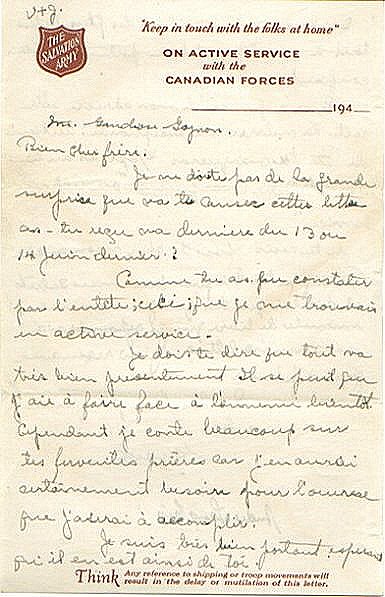 V+J.
THE
SALVATION
ARMY
"Keep in touch with the folks at home"
ON ACTIVE SERVICE
with the
CANADIAN FORCES
194
Bien cher frère.
Je me doute pas de la grande
surprise que va te causer cette lettre
as-tu reçu ma dernière du 13 ou
14 Juin dernier?
Comme tu as pu constater
par l'entête, ceci, que je me trouvais
en active service.
Je dois te dire que tout va
très bien présentement Il se peut que
j'aie à faire face à l'ennemi bientôt
Cependant je conte beaucoup sur
tes ferventes prières car j'en aurai
certainement besoin pour l'ouvrage
que j'aurai à accomplir.
Je suis très bien portant espérant
qu'il en est ainsi de toi.
Think Any reference to shipping or troop movements will
result in the delay or mutilation of this letter.